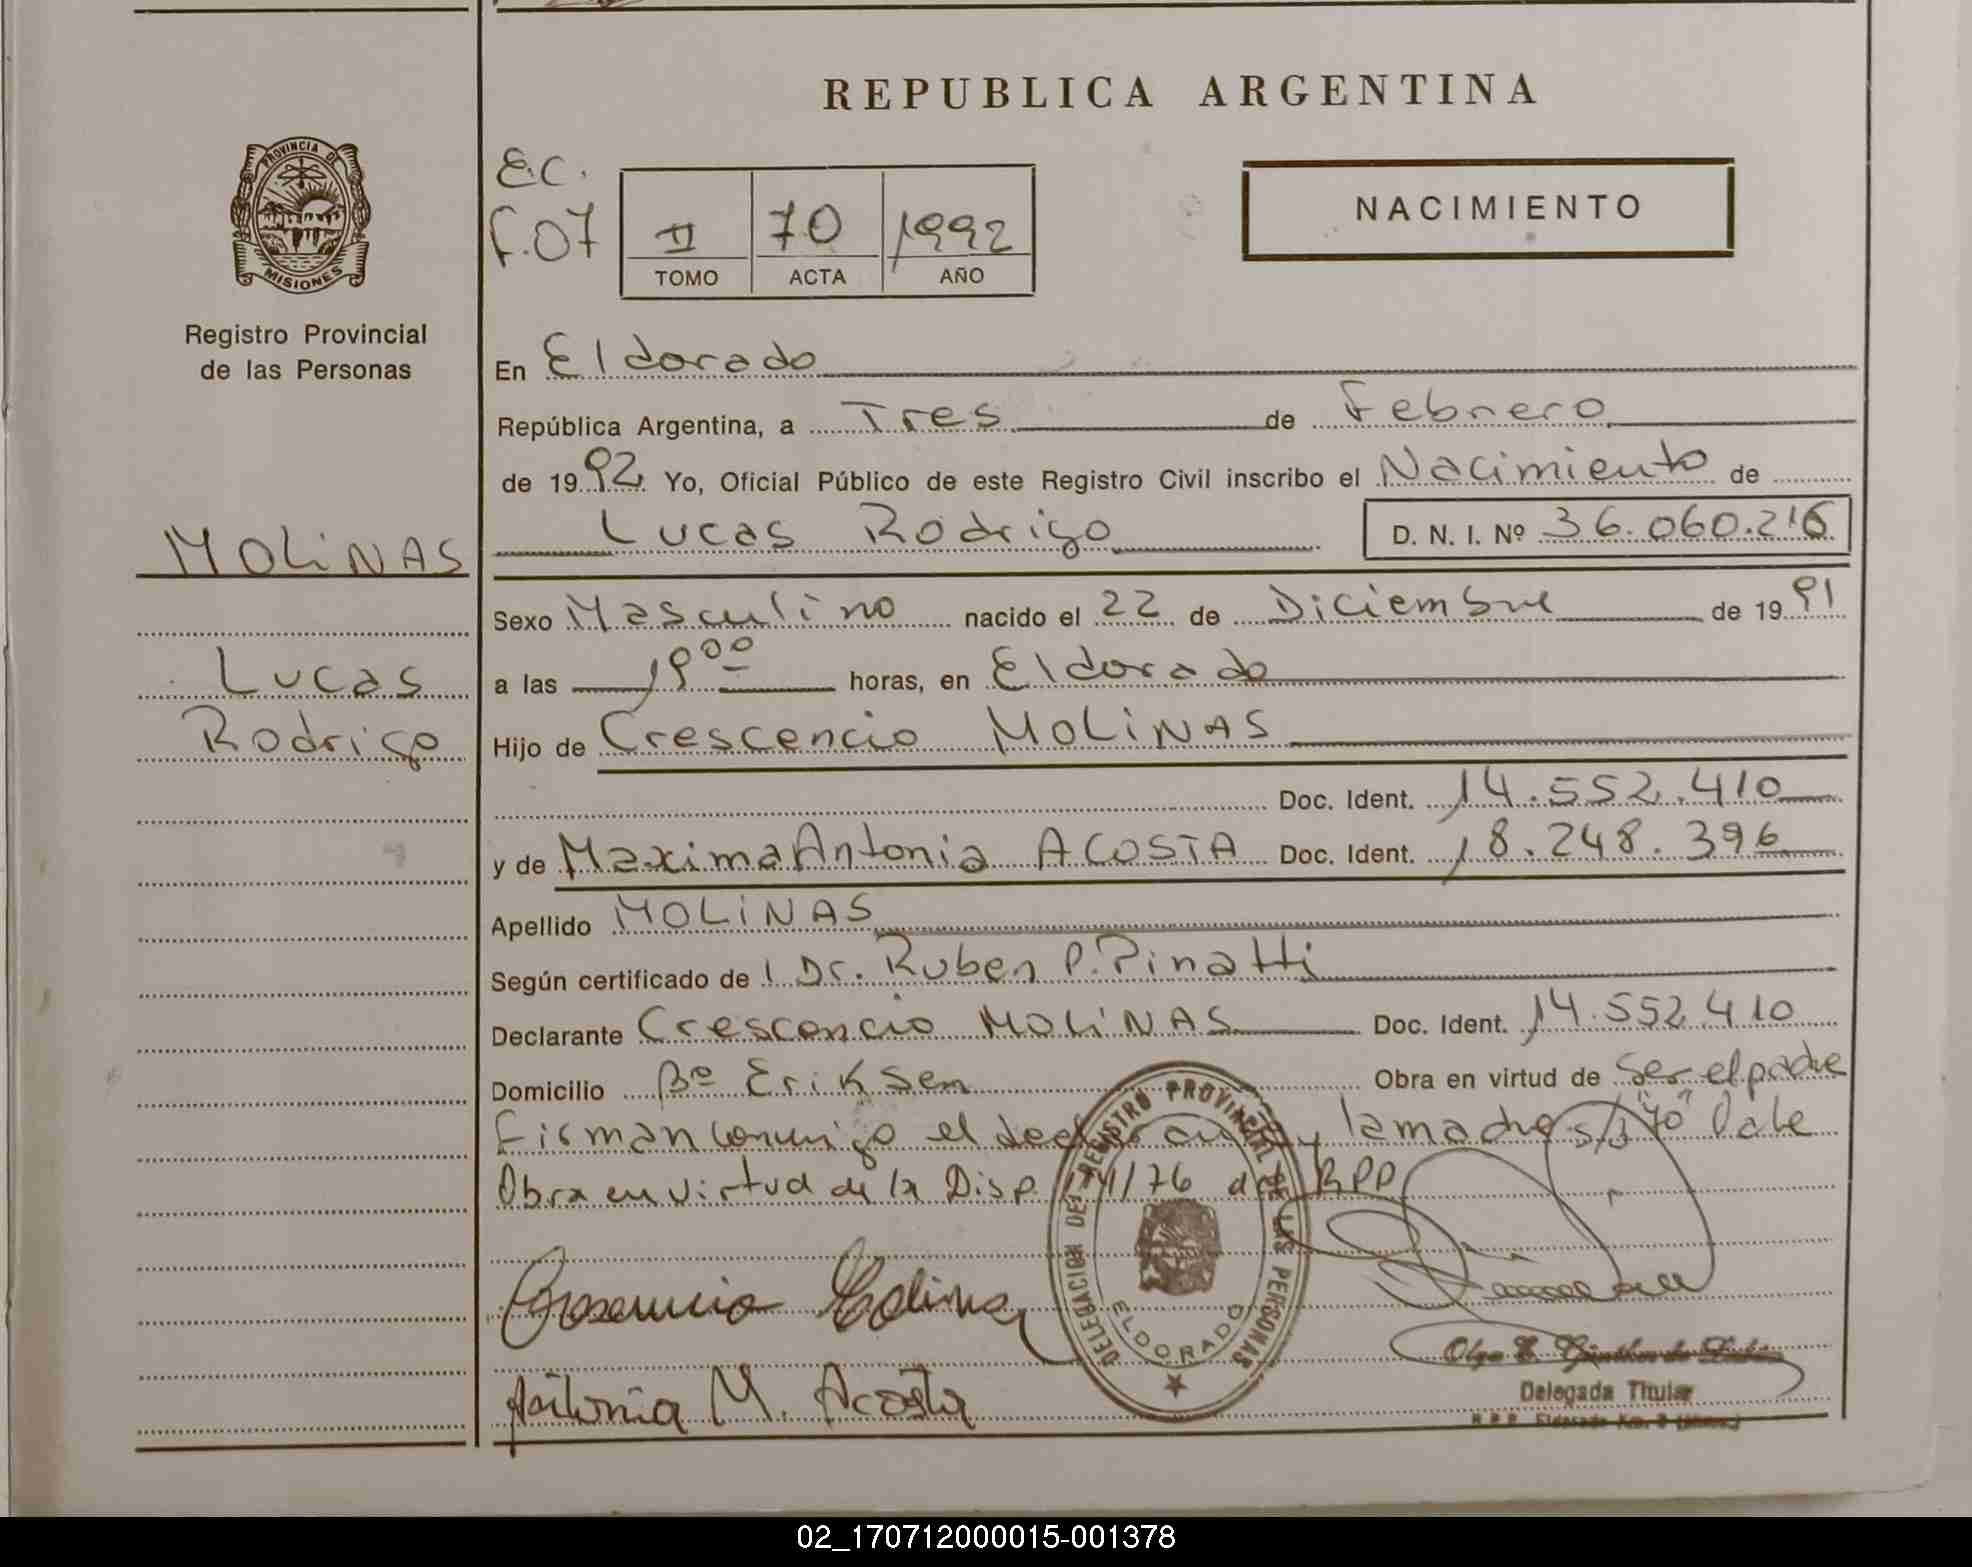 REPUBLICA ARGENTINA
PROVINCIA DE
MISIONES
Registro Provincial
de las Personas
E.C.
F.07
II 70 1992
TOMO ACTA AÑO
NACIMIENTO
MOLINAS
Lucas
Rodrigo
En Eldorado
República Argentina, a Tres de Febrero
de 1992 Yo, Oficial Público de este Registro Civil inscribo el Nacimiento de
Lucas Rodrigo D. N. I. Nº 36.060.216
Sexo Masculino nacido el 22 de Diciembre de 1991
a las 19 00 horas, en Eldorado
Hijo de Crescencio MOLINAS
Doc. Ident. 14.552.410
y de Maxima Antonia ACOSTA Doc. Ident. 18.248.396
Apellido MOLINAS
Según certificado de l Dr. Ruben P. Pinatti
Declarante Crescencio MOLINAS Doc. Ident. 14.552.410
Domicilio Bº Eriksen Obra en virtud de Ser el padre
Firman conmigo el declarante y la madre s/s "70" Vale
Obra en virtud de la Disp. /76 del RPP
DELEGACION DEL REGISTRO PROVINCIAL DE LAS PERSONAS
ELDORADO
Crescencio Molina
Antonia M. Acosta
Delegada Titular
02_170712000015-001378